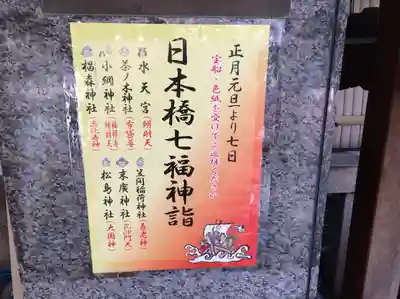 正月元旦より七日
宝船・色紙を受けてご巡拝ください
日本橋七福神詣
水天宮(弁財天)
茶ノ木神社(布袋尊)
小網神社(福禄寿・弁財天)
椙森神社(恵比寿神)
笠間稲荷神社(寿老神)
末廣神社(毘沙門天)
松島神社(大国神)